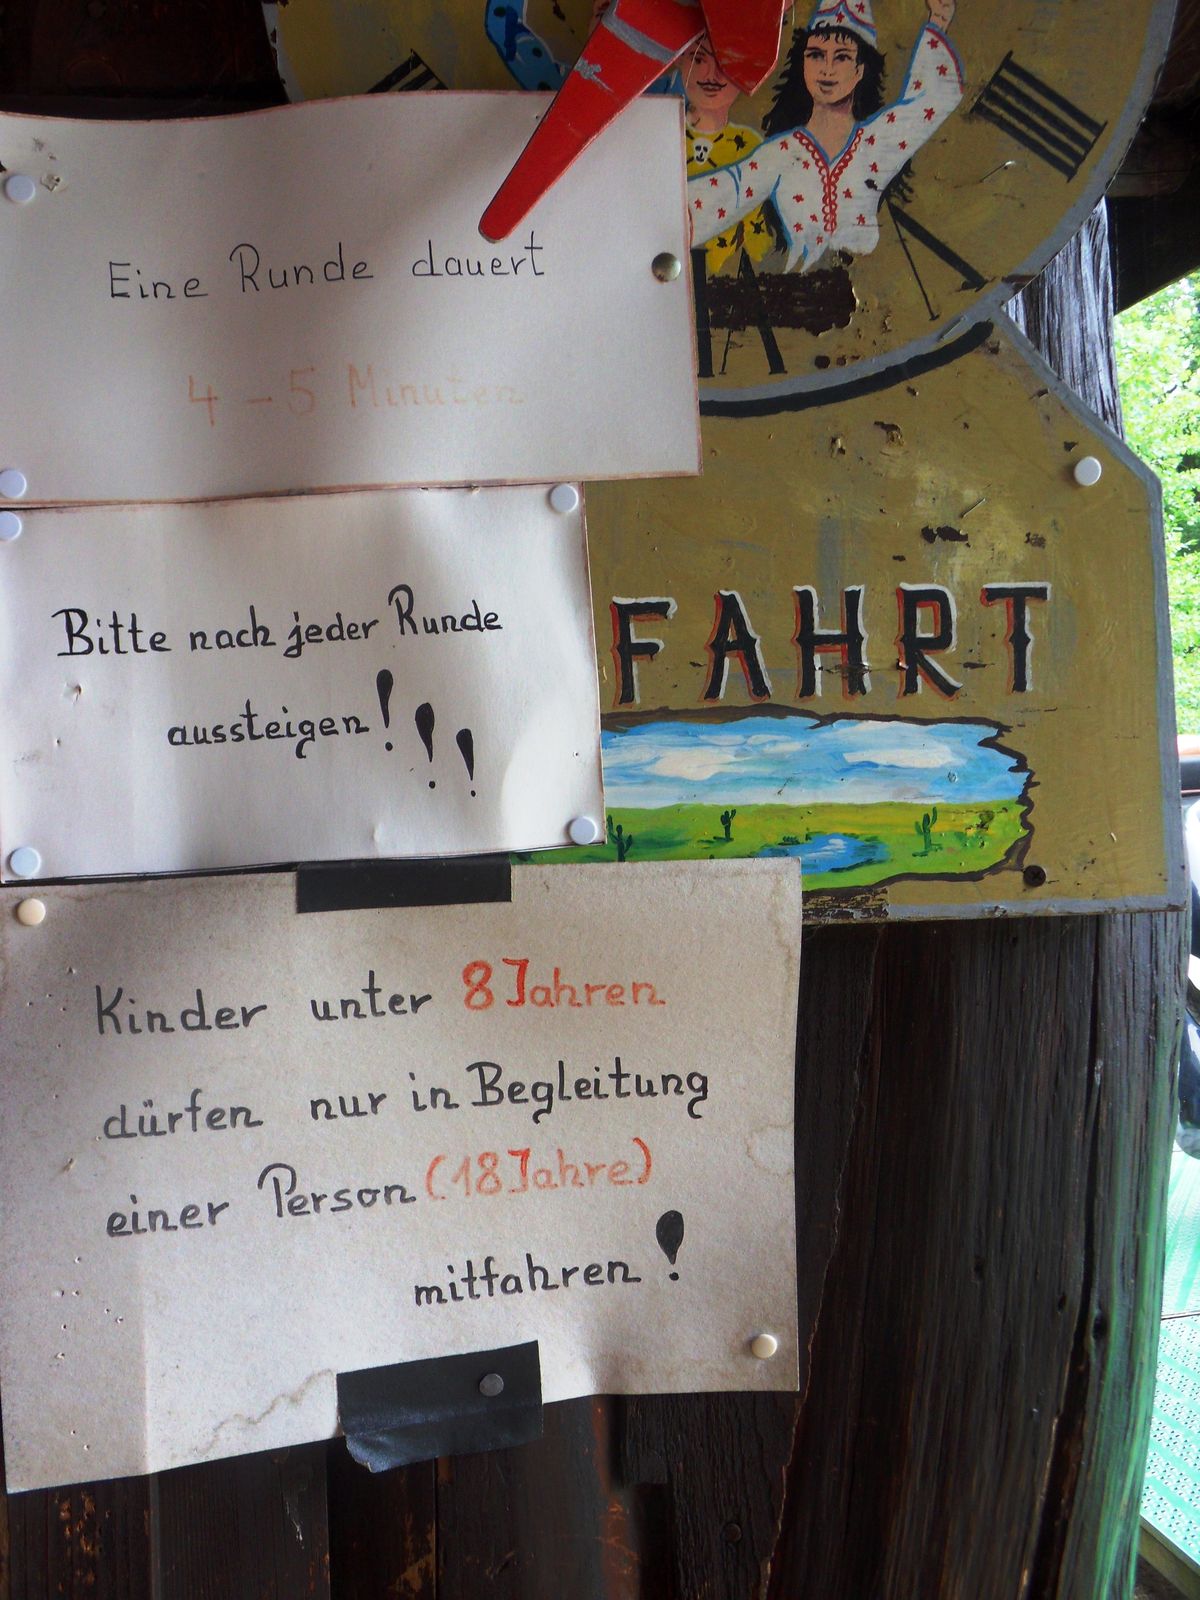 Eine Runde dauert
4 - 5 Minuten
Bitte nach jeder Runde
aussteigen!!!
FAHRT
Kinder unter 8 Jahren
dürfen nur in Begleitung
einer Person (18 Jahre)
mitfahren!